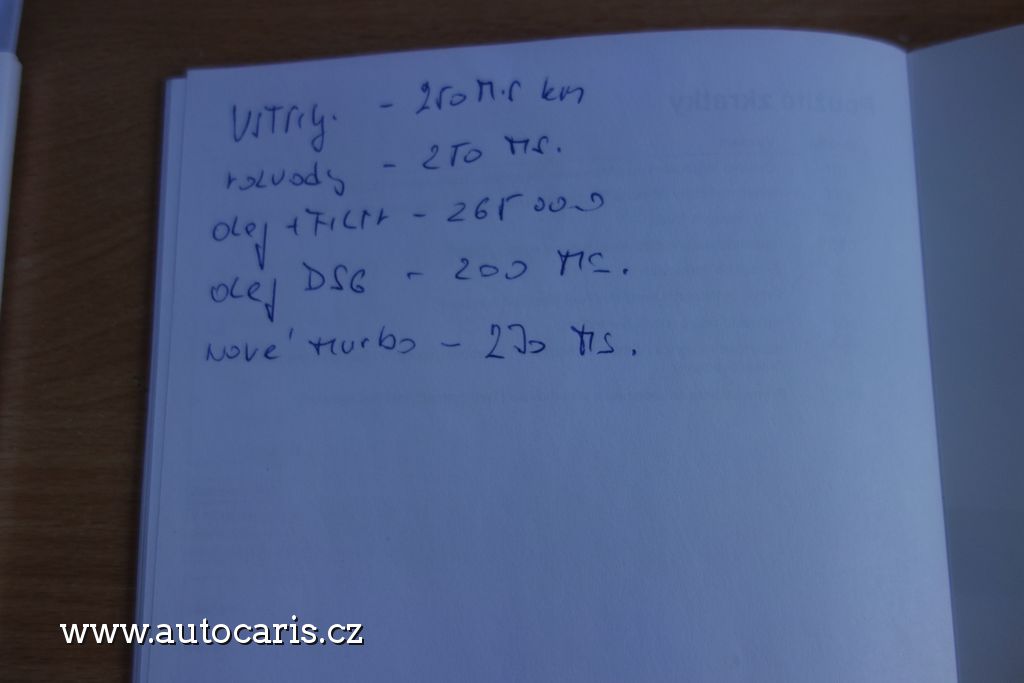 Použité zkratky
VSTŘIKY. - 250 TIS km
rozvody - 250 TIS.
olej + FILTR - 265 000
olej DSG - 200 TIS.
nové turbo - 270 TIS.
www.autocaris.cz